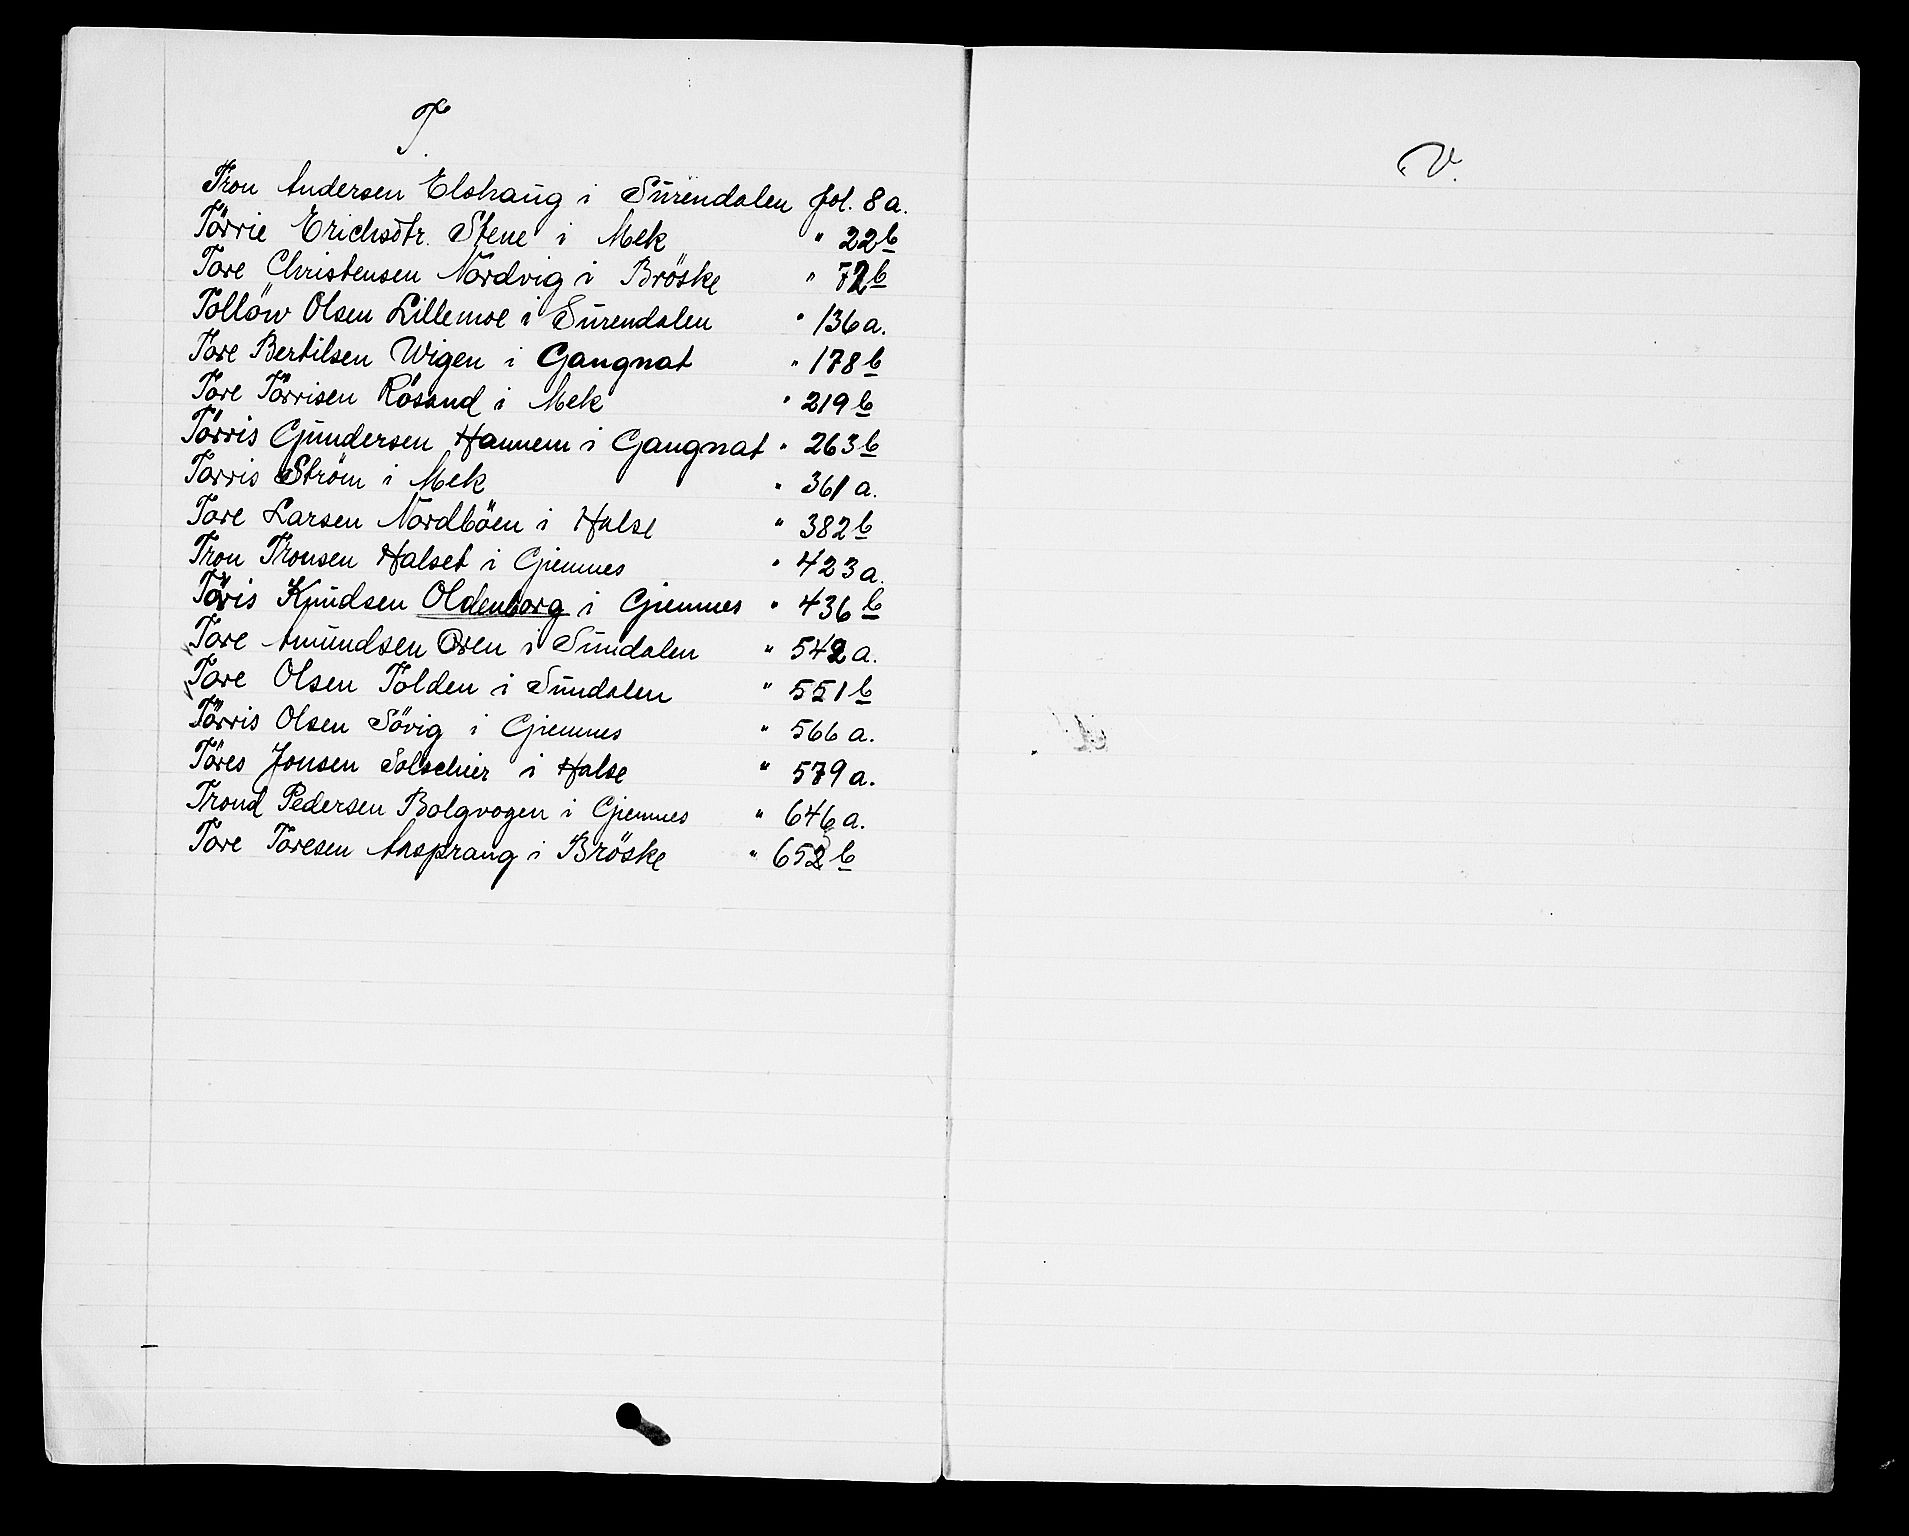 T.
Tron Andersen Elshaug i Surendalen fol. 8 a.
Törrie Erichsdtr. Stene i Mek " 22 b
Tore Christensen Nordvig i Bröske " 72 b
Tollöw Olsen Lillemoe i Surendalen " 136 a.
Tore Bertilsen Wigen i Gangnat " 178 b
Tore Törrisen Rösand i Mek " 219 b
Törris Gundersen Hannem i Gangnat " 263 b
Torris Ström i Mek " 361 a.
Tore Larsen Nordböen i Halse " 382 b
Tron Tronsen Halset i Giemnes " 423 a.
Töris Knudsen Oldenborg i Giemnes " 436 b
Tore Amundsen Oren i Sundalen " 542 a.
Tore Olsen Tolden i Sundalen " 551 b
Törris Olsen Sövig i Giemnes " 566 a.
Töres Jonsen Solschier i Halse " 579 a.
Trond Pedersen Bolgvogen i Giemnes " 646 a.
Tore Toresen Aasprang i Bröske " 652 b
V.